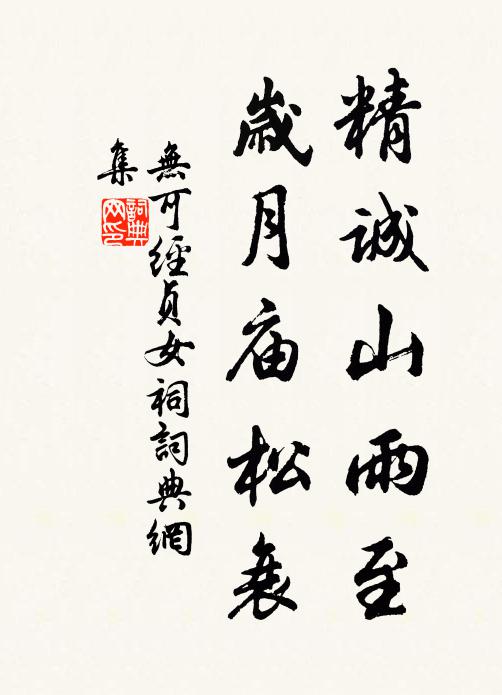 精誠山雨至
歲月庙松衰
無可經貞女祠詞典網
集
詞典网印